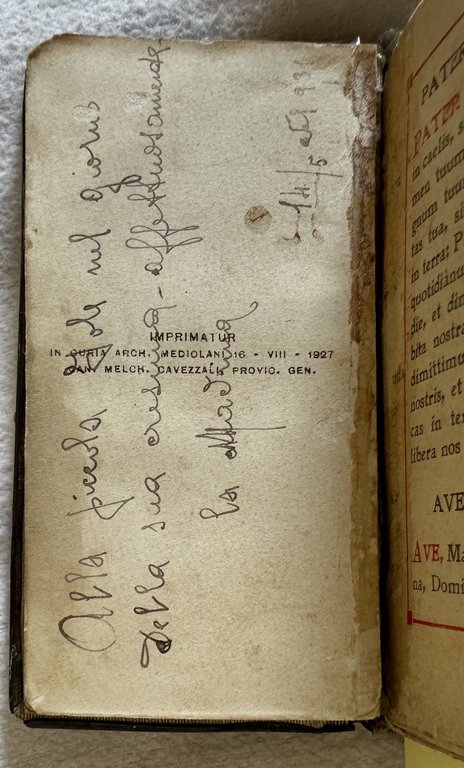 Alla piccola nel giorno
della sua cresima - affettuosamente
la Madrina
IMPRIMATUR
IN CURIA ARCH. MEDIOLANI 16 - VIII - 1927
CAN. MELCH. CAVEZZALI, PROVIC. GEN.
PATER
PATER
in caelis, s
men tuum
gnum tuu
tas tua, si
in terra; P
quotidiànu
die, et di
bita nostra
dimittimu
nostris, et
cas in ten
libera nos
AVE
AVE, Ma
na, Domi